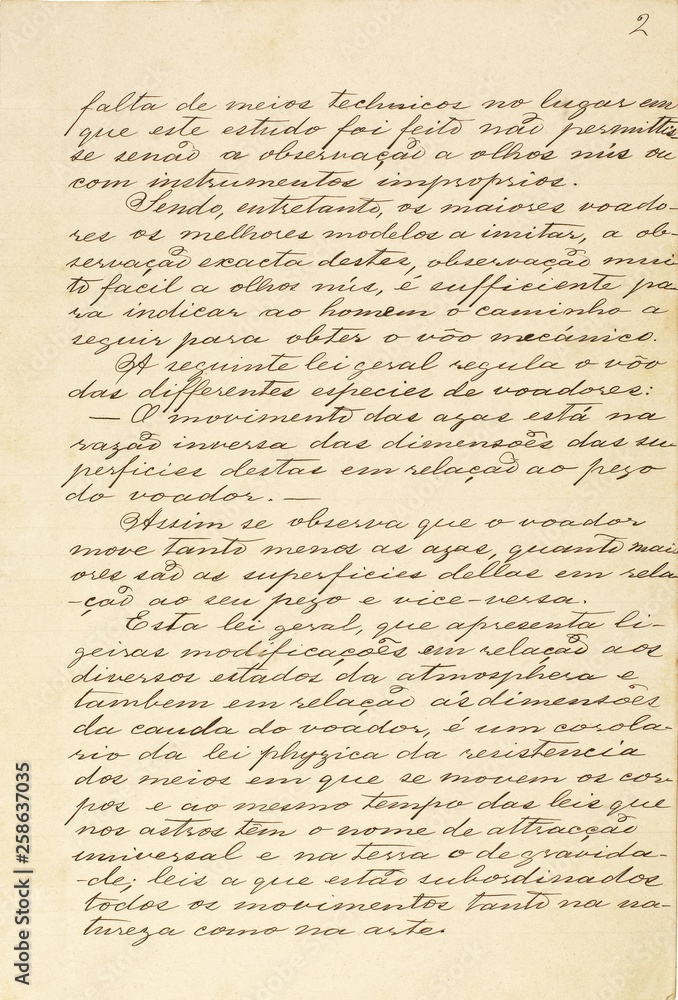 2
falta de meios technicos no lugar em
que este estudo foi feito não permittis
se senão a observação a olhos nús ou
com instrumentos improprios.
Sendo, entretanto, os maiores voado-
res os melhores modelos a imitar, a ob-
servação exacta destes, observação mui
to facil a olhos nús, é sufficiente pa-
ra indicar ao homem o caminho a
seguir para obter o vôo mecánico.
A seguinte lei geral regula o vôo
das differentes especies de voadores:
— O movimento das azas está na
razão inversa das dimensões das su
perficies destas em relação ao pezo
do voador. —
Assim se observa que o voador
move tanto menos as azas, quanto mai
ores são as superficies dellas em rela
-ção ao seu pezo e vice-versa.
Esta lei geral, que apresenta li-
geiras modificações em relação aos
diversos estados da atmosphera e
tambem em relação ás dimensões
da cauda do voador, é um corola-
rio da lei phyzica da resistencia
dos meios em que se movem os cor-
pos e ao mesmo tempo das leis que
nos astros têm o nome de attracção
universal e na terra o de gravida-
-de; leis a que estão subordinados
todos os movimentos tanto na na-
tureza como na arte.
Adobe Stock | #258637035